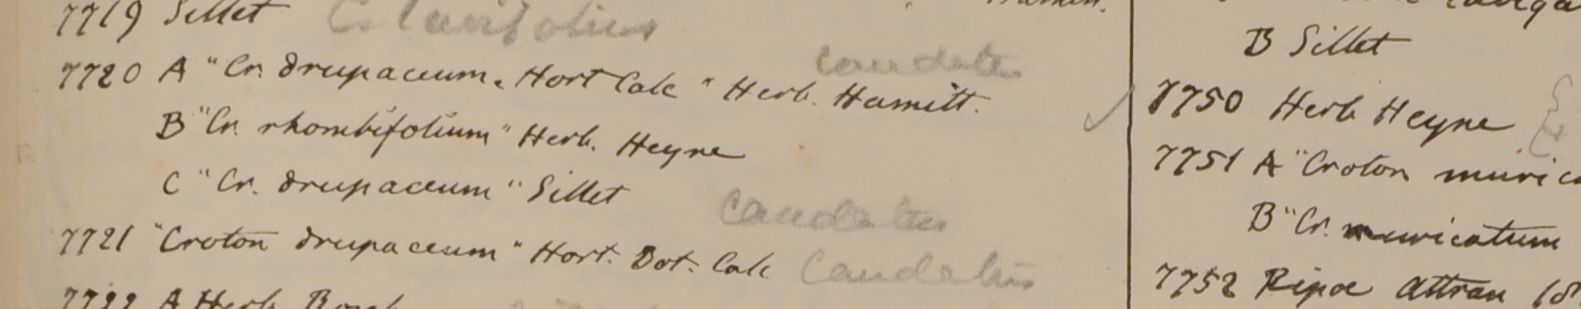 7719 Sillet C. laevifolius
7720 A "Cr. drupaceum. Hort Calc" Herb. Hamilt. caudatus
B "Cr. rhombifolium" Herb. Heyne
C "Cr. drupaceum" Sillet caudatus
7721 "Croton drupaceum" Hort. Bot. Calc caudatus
7722 A Herb. Roxb
B Sillet
7750 Herb Heyne
7751 A "Croton murica
B "Cr. muricatum
7752 Ripae Attran 18